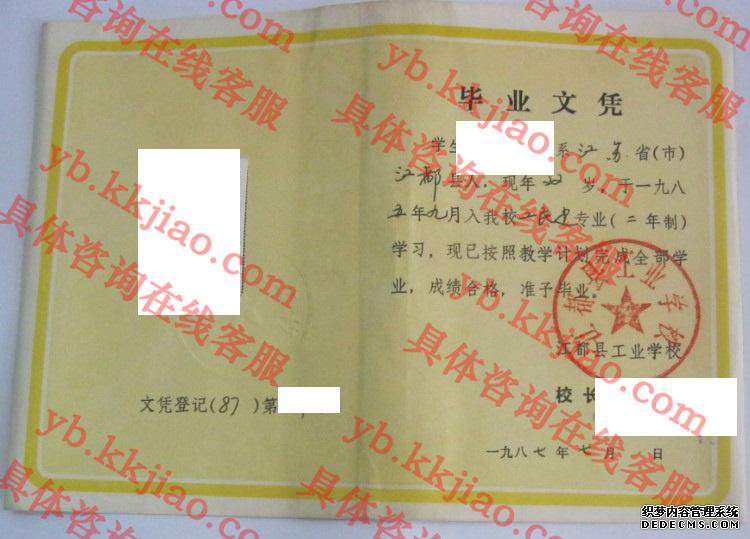 毕业文凭
学生 系江苏省(市)
江都县人，现年 岁，于一九八
五年九月入我校工民建专业(二年制)
学习，现已按照教学计划完成全部学
业，成绩合格，准予毕业。
江都县工业学校
江都县工业学校
校长
一九八七年七月 日
文凭登记(87)第
yb.kkjiao.com
具体咨询在线客服
yb.kkjiao.com
具体咨询在线客服
yb.kkjiao.com
具体咨询在线客服
yb.kkjiao.com
具体咨询在线客服
yb.kkjiao.com
具体咨询在线客服
织梦内容管理系统
DEDECMS.COM